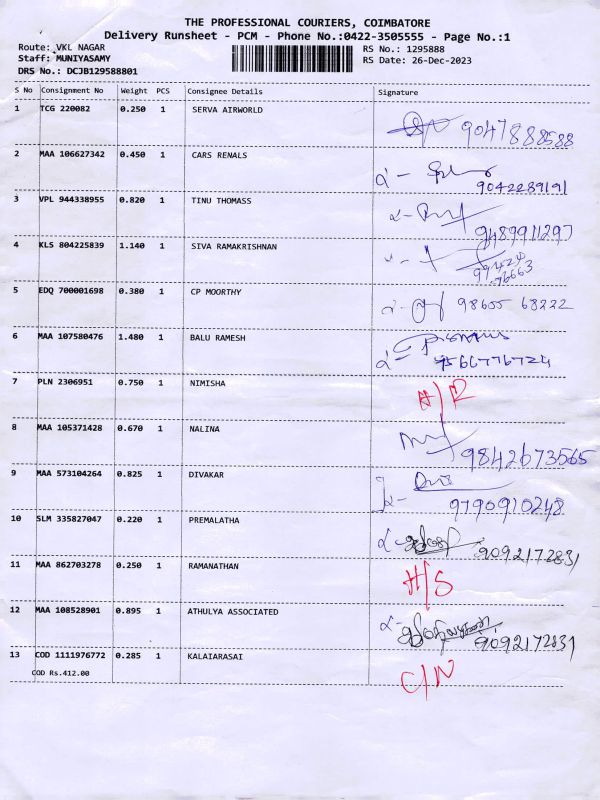 THE PROFESSIONAL COURIERS, COIMBATORE
Delivery Runsheet - PCM - Phone No.:0422-3505555 - Page No.:1
Route: VKL NAGAR RS No.: 1295888
Staff: MUNIYASAMY RS Date: 26-Dec-2023
DRS No.: DCJB129588801
S No Consignment No Weight PCS Consignee Details Signature
1 TCG 220082 0.250 1 SERVA AIRWORLD 9047888588
2 MAA 106627342 0.450 1 CARS RENALS
9042289191
3 VPL 944338955 0.820 1 TINU THOMASS
9489911297
4 KLS 804225839 1.140 1 SIVA RAMAKRISHNAN
99424
76663
5 EDQ 700001698 0.380 1 CP MOORTHY 98655 68222
6 MAA 107580476 1.480 1 BALU RAMESH
9566776724
7 PLN 2306951 0.750 1 NIMISHA
8 MAA 105371428 0.670 1 NALINA
9842673565
9 MAA 573104264 0.825 1 DIVAKAR
9790910248
10 SLM 335827047 0.220 1 PREMALATHA
9092172831
11 MAA 862703278 0.250 1 RAMANATHAN
H/S
12 MAA 108528901 0.895 1 ATHULYA ASSOCIATED
9092172831
13 COD 1111976772 0.285 1 KALAIARASAI
COD Rs.412.00 C/N